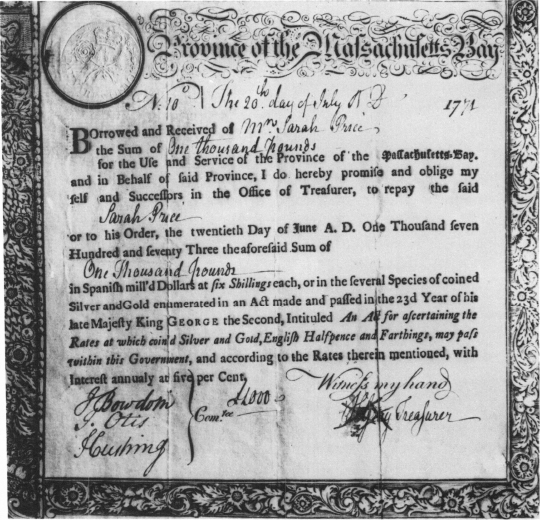 Province of the Massachusetts Bay
No. 10 The 20th. day of July A D 1771
BOrrowed and Received of Mrs Sarah Price
the Sum of One thousand pounds
for the Use and Service of the Province of the Massachusetts-Bay.
and in Behalf of said Province, I do hereby promise and oblige my
self and Successors in the Office of Treasurer, to repay the said
Sarah Price
or to his Order, the twentieth Day of June A. D. One Thousand seven
Hundred and seventy Three the aforesaid Sum of
One Thousand pounds
in Spanish mill'd Dollars at six Shillings each, or in the several Species of coined
Silver and Gold enumerated in an Act made and passed in the 23d Year of his
late Majesty King GEORGE the Second, Intituled An Act for ascertaining the
Rates at which coin'd Silver and Gold, English Halfpence and Farthings, may pass
within this Government, and according to the Rates therein mentioned, with
Interest annualy at five per Cent,
Witness my hand
J Bowdoin
J. Otis
Cushing
Com.tee
£1000
Treasurer